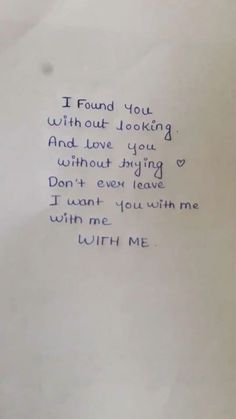 I Found You
without looking.
And love you
without trying ♡
Don't ever leave
I want you with me
with me
WITH ME.